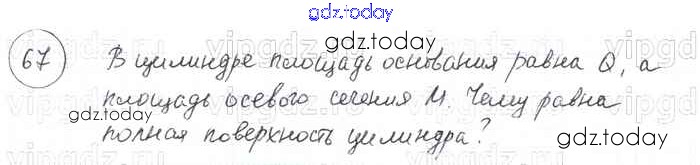 gdz.today
gdz.today
67 В цилиндре площадь основания равна Q, а
площадь осевого сечения M. Чему равна
полная поверхность цилиндра?
gdz.today
gdz.today